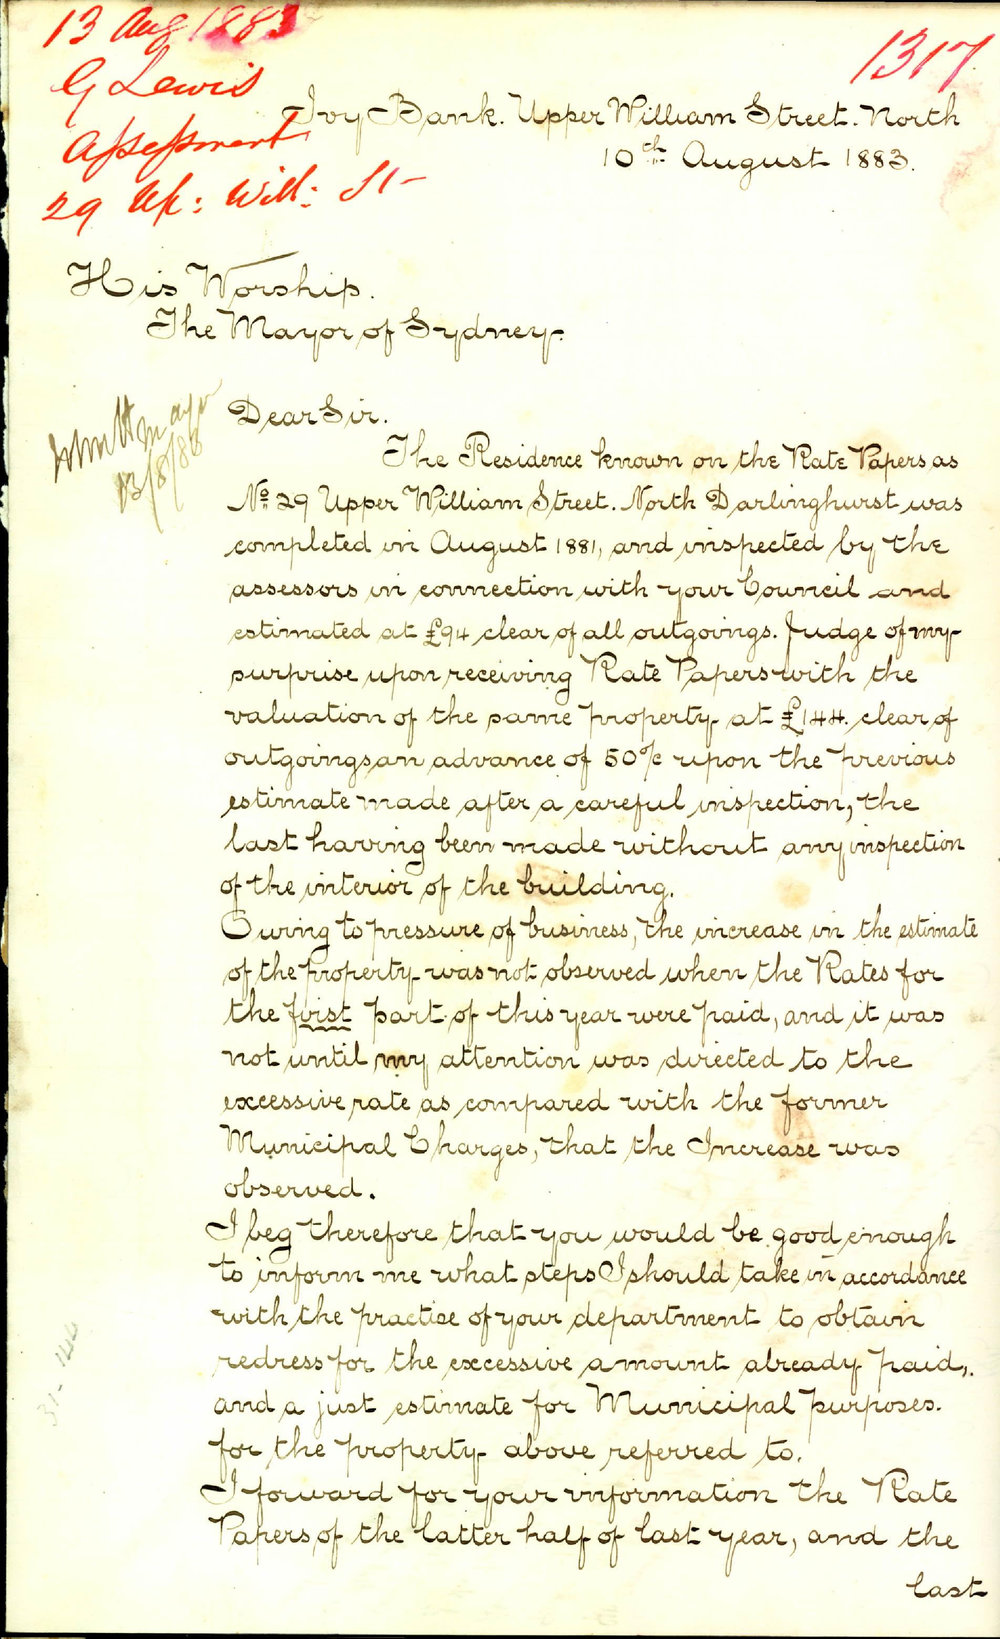 13 Aug 1883
1317
G Lewis
Assessment
29 Up: Will: St
Ivy Bank. Upper William Street. North
10th August 1883.
His Worship.
The Mayor of Sydney.
Mayor
13/8/83
Dear Sir.
The Residence known on the Rate Papers as
No 29 Upper William Street. North Darlinghurst was
completed in August 1881, and inspected by the
assessors in connection with your Council and
estimated at £94 clear of all outgoings. Judge of my
surprise upon receiving Rate Papers with the
valuation of the same property at £144. clear of
outgoings an advance of 50% upon the previous
estimate made after a careful inspection, the
last having been made without any inspection
of the interior of the building.
Owing to pressure of business, the increase in the estimate
of the property was not observed when the Rates for
the first part of this year were paid, and it was
not until my attention was directed to the
excessive rate as compared with the former
Municipal Charges, that the Increase was
observed.
I beg therefore that you would be good enough
to inform me what steps I should take in accordance
with the practice of your department to obtain
redress for the excessive amount already paid,
and a just estimate for Municipal purposes.
for the property above referred to.
I forward for your information the Rate
Papers of the latter half of last year, and the
last